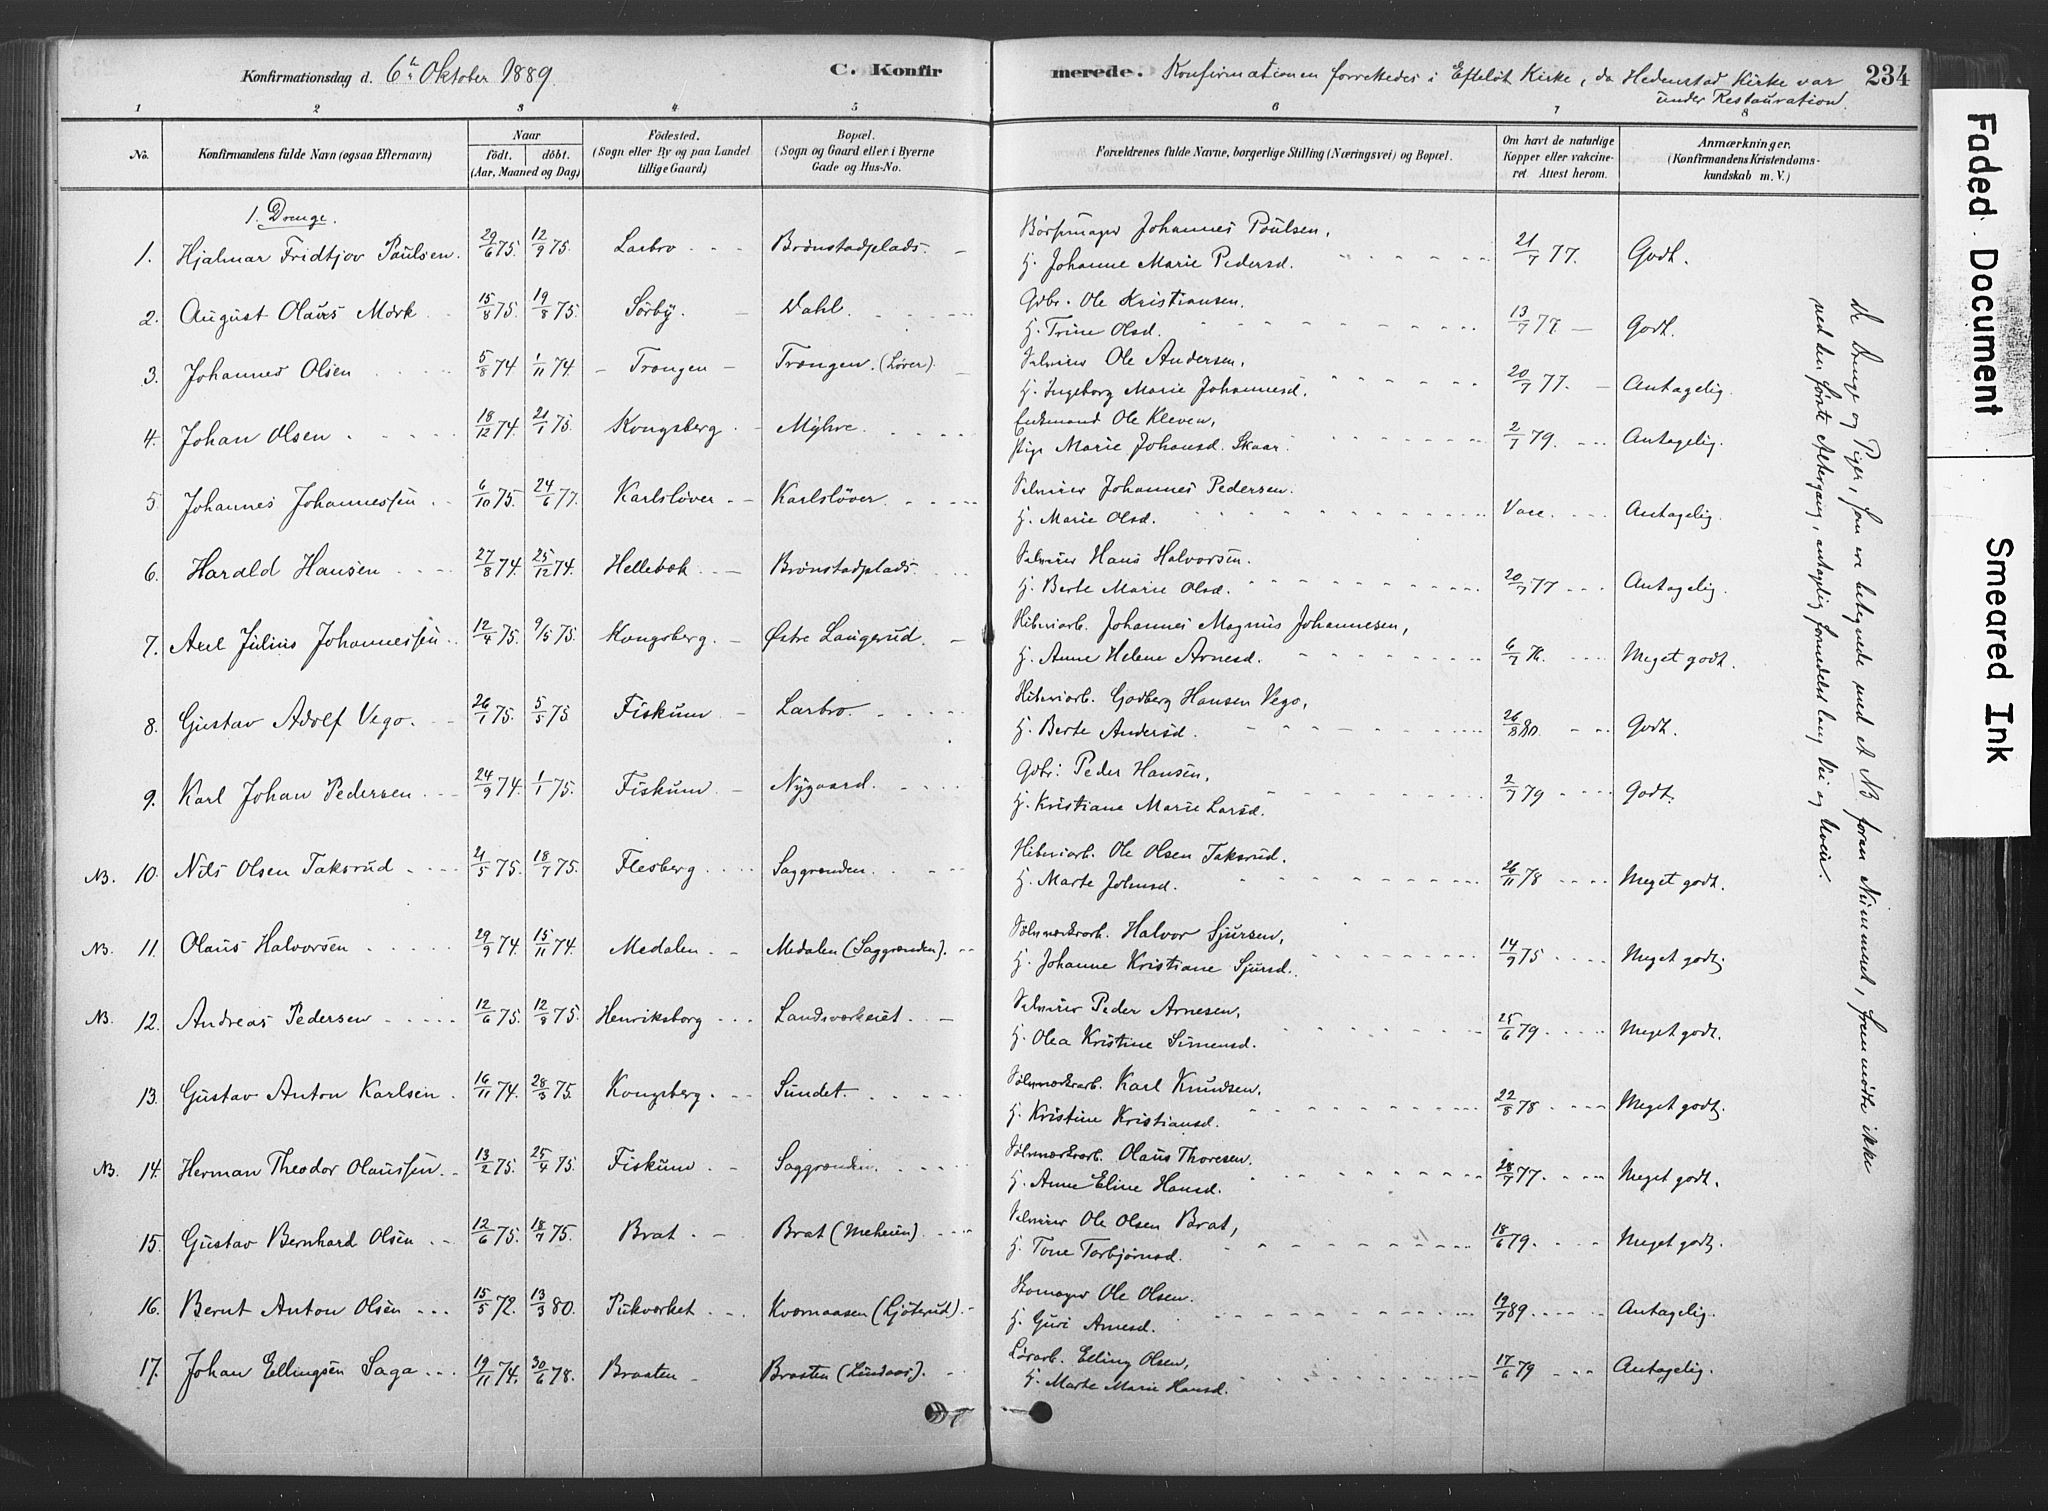 Konfirmationsdag d. 6te Oktober 1889.
C. Konfirmerede.
Konfirmationen forrettedes i Efteløt Kirke, da Hedenstad Kirke var
under Restauration.
234
1 2 3 4 5 6 7 8
No.
Konfirmandens fulde Navn (ogsaa Efternavn)
Naar
födt. döbt.
(Aar, Maaned og Dag)
Födested.
(Sogn eller By og paa Landet
tillige Gaard)
Bopæl.
(Sogn og Gaard eller i Byerne
Gade og Hus-No.
Forældrenes fulde Navne, borgerlige Stilling (Næringsvei) og Bopæl.
Om havt de naturlige
Kopper eller vakcine-
ret. Attest herom.
Anmærkninger.
(Konfirmandens Kristendoms-
kundskab m. V.)
1. Drenge.
1. Hjalmar Fridtjov Paulsen. 29/6 75. 12/9 75. Larbro Brønstadplads. Børsemager Johannes Poulsen, 21/7 77. Godt.
H. Johanne Marie Pedersd.
2. August Olaves Mørk 15/8 75. 19/8 75. Sørby. Dahl. Gdbr. Ole Kristiansen, 13/7 77. Godt.
H. Trine Olsd.
3. Johannes Olsen 5/8 74 1/11 74. Trongen Trongen. (Løver). Selveier Ole Andersen, 20/7 77. Antagelig.
H. Ingeborg Marie Johannesd.
4. Johan Olsen 18/12 74. 21/1 75. Kongsberg Myhre. Enkemand Ole Kleven, 2/7 79. Antagelig.
Pige Marie Johansd. Skaar.
5. Johannes Johannessen 6/10 75. 24/6 77. Karlsløver Karlsløver Selveier Johannes Pedersen. Vacc. Antagelig.
H. Marie Olsd.
6. Harald Hansen 27/8 74. 25/12 74. Hellebæk Brønstadplads. Selveier Hans Halvorsen. 20/7 77 Antagelig.
H. Berte Marie Olsd.
7. Axel Julius Johannessen 12/4 75. 9/5 75. Kongsberg Østre Langerud. Johannes Magnus Johannesen, 6/7 76. Meget godt.
H. Anne Helene Arnesd.
8. Gustav Adolf Vego. 26/1 75. 5/5 75 Fiskum Larbro. Godberg Hansen Vego, 26/8 80. Godt.
H. Berte Andersd.
9. Karl Johan Pedersen 24/9 74. 1/1 75. Fiskum Nygaard. Gdbr. Peder Hansen, 2/7 79 Godt.
H. Kristiane Marie Larsd.
NB. 10. Nils Olsen Taksrud 21/5 75. 18/7 75. Flesberg Saggrenden. Ole Olsen Taksrud. 26/11 78 Meget godt.
H. Marte Johnsd.
NB. 11. Olaus Halvorsen 29/9 74. 15/11 74. Medalen Medalen (Saggrenden). Sølvværksarb. Halvor Sjursen, 14/9 75 Meget godt.
H. Johanne Kristiane Sjursd.
NB. 12. Andreas Pedersen 12/6 75. 12/9 75. Henriksborg Landsværkeiet. Selveier Peder Arnesen, 25/6 79 Meget godt.
H. Olea Kristine Simensd.
13. Gustav Anton Karlsen 16/11 74. 28/3 75. Kongsberg. Sundet. Sølvværksarb. Karl Knudsen, 22/8 78 Meget godt.
H. Kristine Kristiansd.
NB. 14. Herman Theodor Olaussen 13/2 75. 25/4 75. Fiskum Saggrenden. Sølvværksarb. Olaus Thoresen. 28/7 77. Meget godt.
H. Anne Eline Hansd.
15. Gustav Bernhard Olsen 12/6 75. 18/7 75. Brat Brat (Meheien). Selveier Ole Olsen Brat, 18/6 79. Meget godt.
H. Tone Torbjørnsd.
16. Bernt Anton Olsen 15/5 72. 13/3 80. Pukværket Kværnaasen (Gjøterud). Skomager Ole Olsen. 19/7 89 Antagelig.
H. Guri Arnesd.
17. Johan Ellingsen Saga 19/11 74. 30/6 78. Braaten Braaten (Lindaas). Elling Olsen, 17/6 79 Antagelig.
H. Marte Marie Hansd.
De Drenge og Piger, som ere betegnede med et NB foran Nummeret, fremmødte ikke
ved den første Altergang, antagelig formedelst lang Vei og Uveir.
Faded Document
Smeared Ink